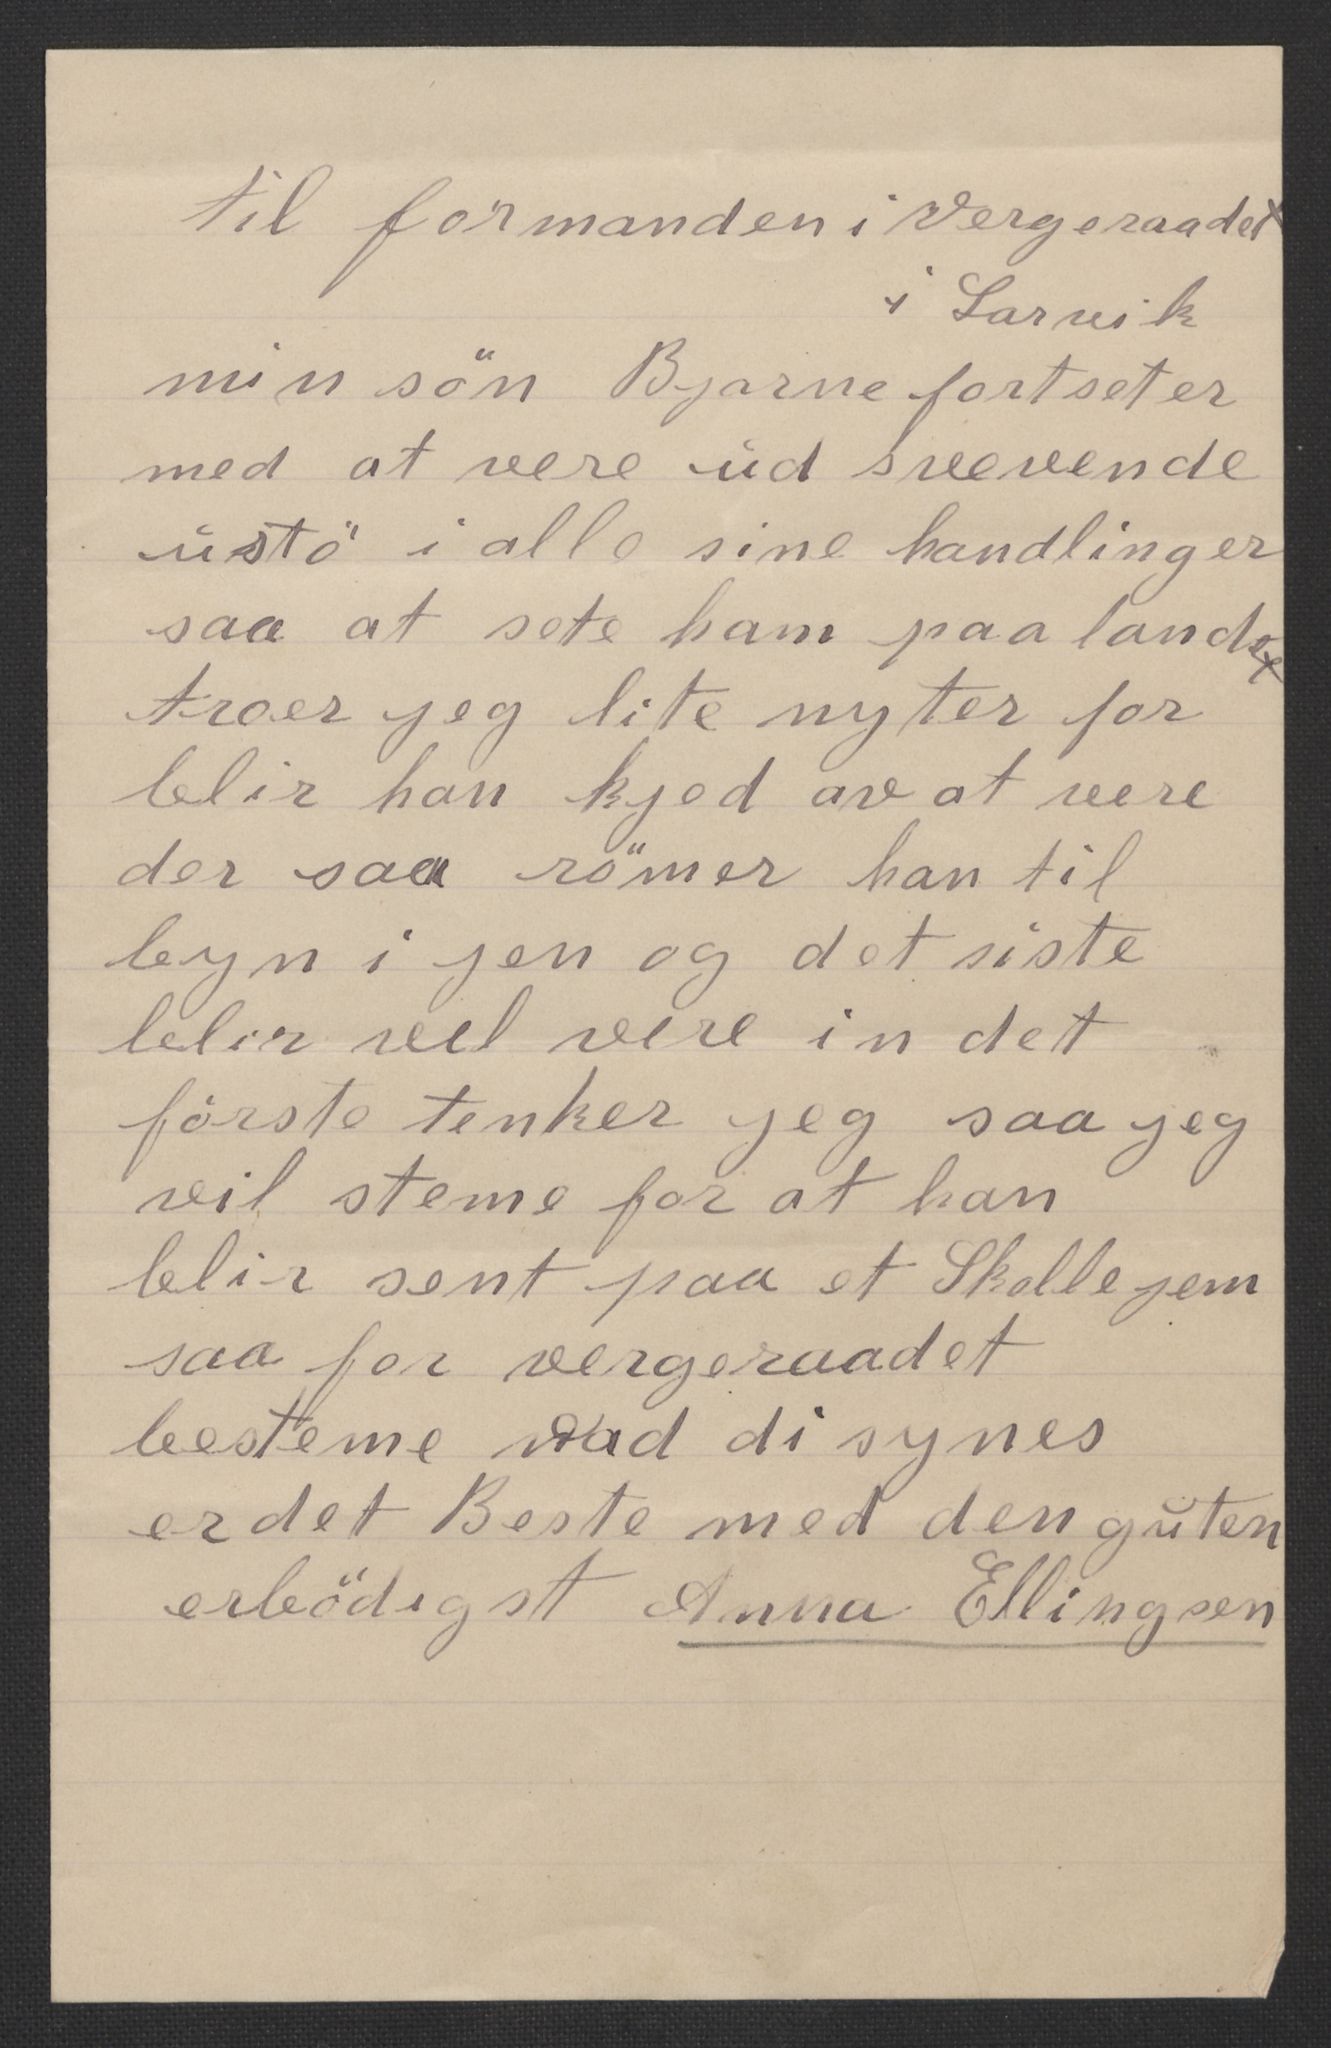 til formanden i Vergeraadet
i Larvik
min sön Bjarne fortseter
med at vere ud svevende
ustö i alle sine handlinger
saa at sete ham paa landet
troer jeg lite nyter for
blir han kjed av at vere
der saa römer han til
byn i jen og det siste
blir vel vere in det
förste tenker jeg saa jeg
vil steme for at han
blir sent paa et Skolle jem
saa for vergeraadet
besteme vad di synes
er det Beste med den guten
erbödigst Anna Ellingsen